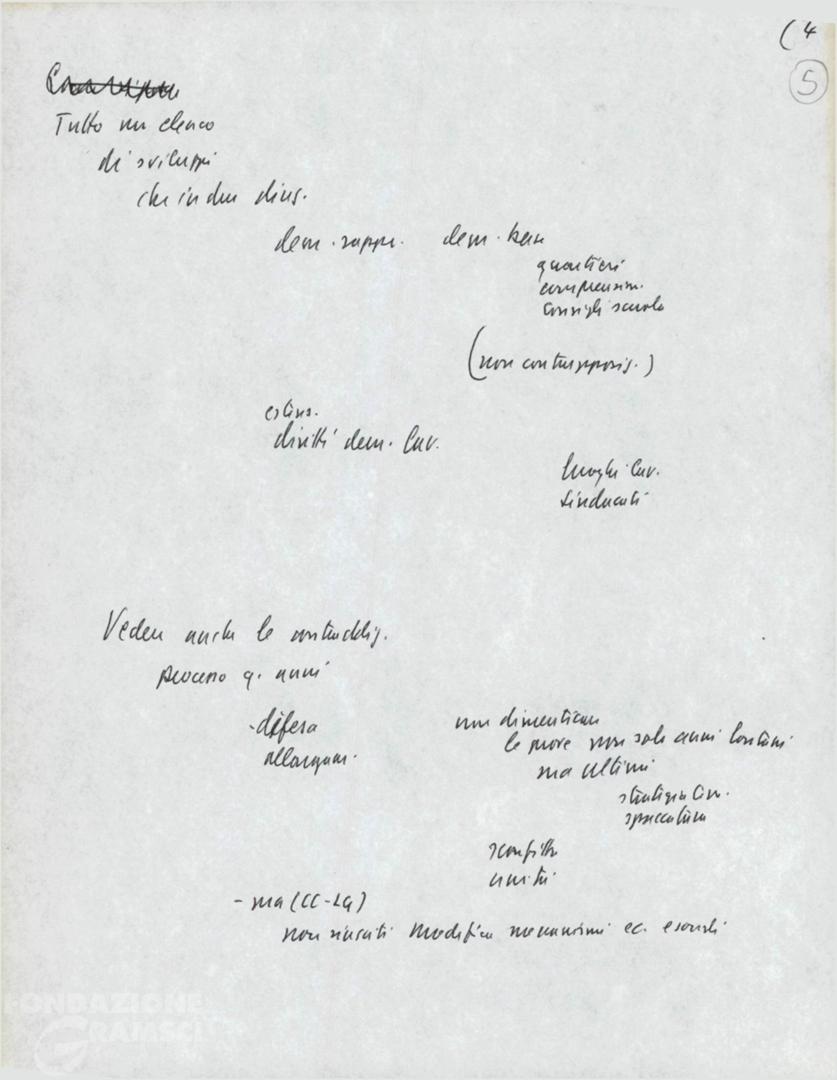 (4
5
Tutto un elenco
di sviluppi
che in due dires.
dem. rappr. dem. base
quartieri
comprensor.
consigli scuola
(non contrapposiz.)
estens.
diritti dem. lav.
luoghi lav.
sindacati
Vedere anche le contraddiz.
processo q. anni
- difesa
allargam.
non dimenticare
le prove non solo anni lontani
ma ultimi
strategia tens.
spaccatura
sconfitta
unità
- ma (CC-LG)
non riusciti modificare meccanismi ec. e sociali
FONDAZIONE
GRAMSCI